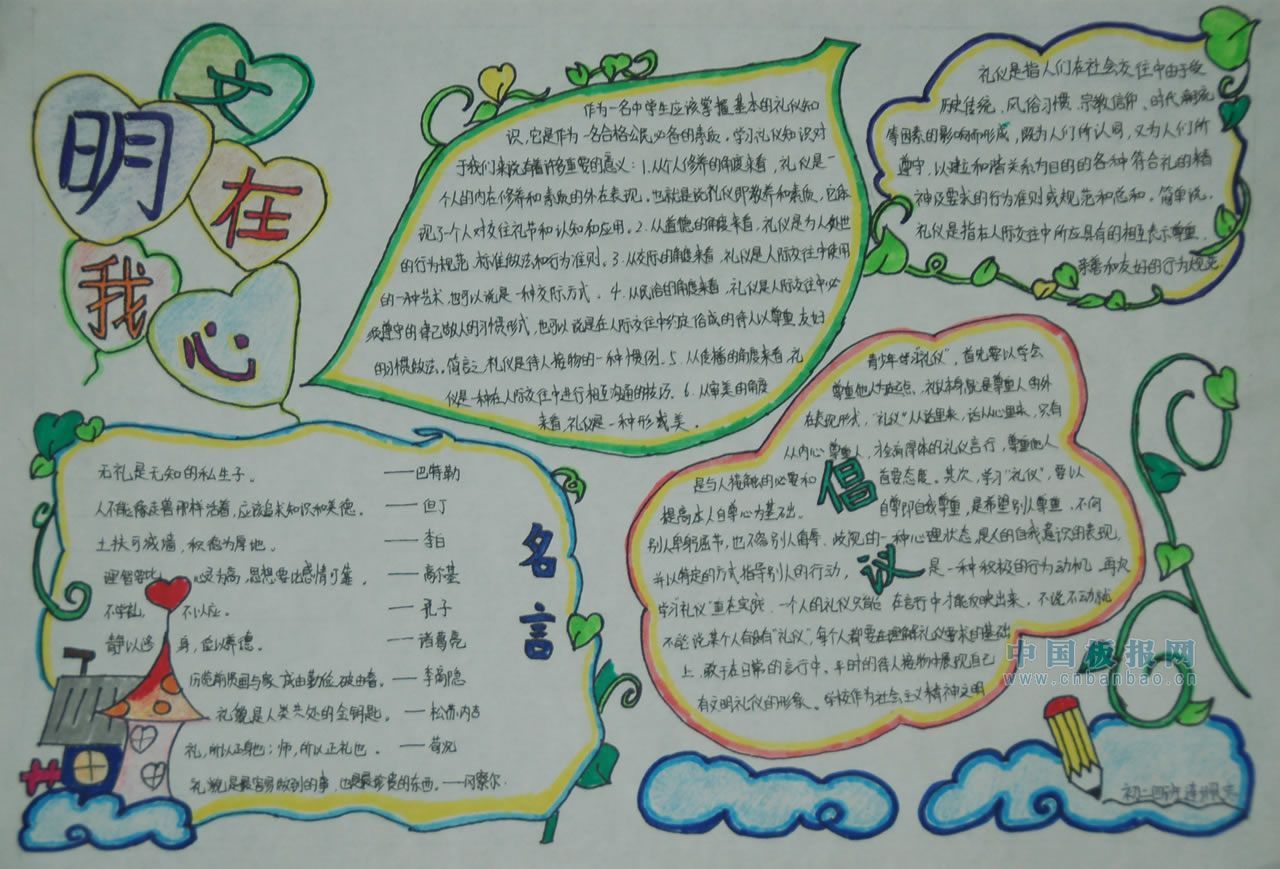 文明在我心
作为一名中学生应该掌握基本的礼仪知
识,它是作为一名合格公民必备的素质。学习礼仪知识对
于我们来说有着许多重要的意义:1.从个人修养的角度来看,礼仪是一
个人的内在修养和素质的外在表现。也就是说礼仪即教养和素质,它体
现了个人对交往礼节和认知和应用。2.从道德的角度来看,礼仪是为人处世
的行为规范、标准做法和行为准则。3.从交际的角度来看,礼仪是人际交往中使用
的一种艺术,也可以说是一种交际方式。4.从民俗的角度来看,礼仪是人际交往中必
须遵守的律己敬人的习惯形式,也可以说是在人际交往中约定俗成的待人以尊重、友好
的习惯做法。简言之,礼仪是待人接物的一种惯例。5.从传播的角度来看,礼
仪是一种在人际交往中进行相互沟通的技巧。6.从审美的角度
来看,礼仪是一种形式美。
礼仪是指人们在社会交往中由于受
历史传统、风俗习惯、宗教信仰、时代潮流
等因素的影响而形成,既为人们所认同,又为人们所
遵守,以建立和谐关系为目的的各种符合礼的精
神及要求的行为准则或规范和总和。简单说,
礼仪是指在人际交往中所应具有的相互表示尊重、
亲善和友好的行为规范。
名言
无礼是无知的私生子。 ——巴特勒
人不能像走兽那样活着,应该追求知识和美德。 ——但丁
土扶可成墙,积德为厚地。 ——李白
理智要比 心灵为高,思想要比感情可靠。 ——高尔基
不学礼, 不以应。 ——孔子
静以修 身,俭以养德。 ——诸葛亮
历览前贤国与家,成由勤俭破由奢。 ——李商隐
礼貌是人类共处的金钥匙。 ——松苏内吉
礼,所以正身也;师,所以正礼也。 ——荀况
礼貌是最容易做到的事,也是最珍贵的东西。——冈察尔
倡议
青少年学习“礼仪”,首先要以学会
尊重他人为起点。礼仪本身就是尊重人的外
在表现形式,“礼仪”从话里来,话从心里来,只有
从内心尊重人,才会有得体的礼仪言行,尊重他人
是与人接触的必要和 首要态度。其次,学习“礼仪”,要以
提高本人自尊心为基础。 自尊即自我尊重,是希望别人尊重,不向
别人卑躬屈节,也不容别人侮辱、歧视的一种心理状态,是人的自我意识的表现,
并以特定的方式指导别人的行动, 是一种积极的行为动机。再次
学习礼仪”重在实践,一个人的礼仪只能 在言行中才能反映出来,不说不动就
不能说某个人有没有“礼仪”,每个人都要在理解礼仪要求的基础
上,敢于在日常的言行中、平时的待人接物中展现自己
有文明礼仪的形象。学校作为社会主义精神文明
中国板报网
www.cnbanbao.cn
初二四班